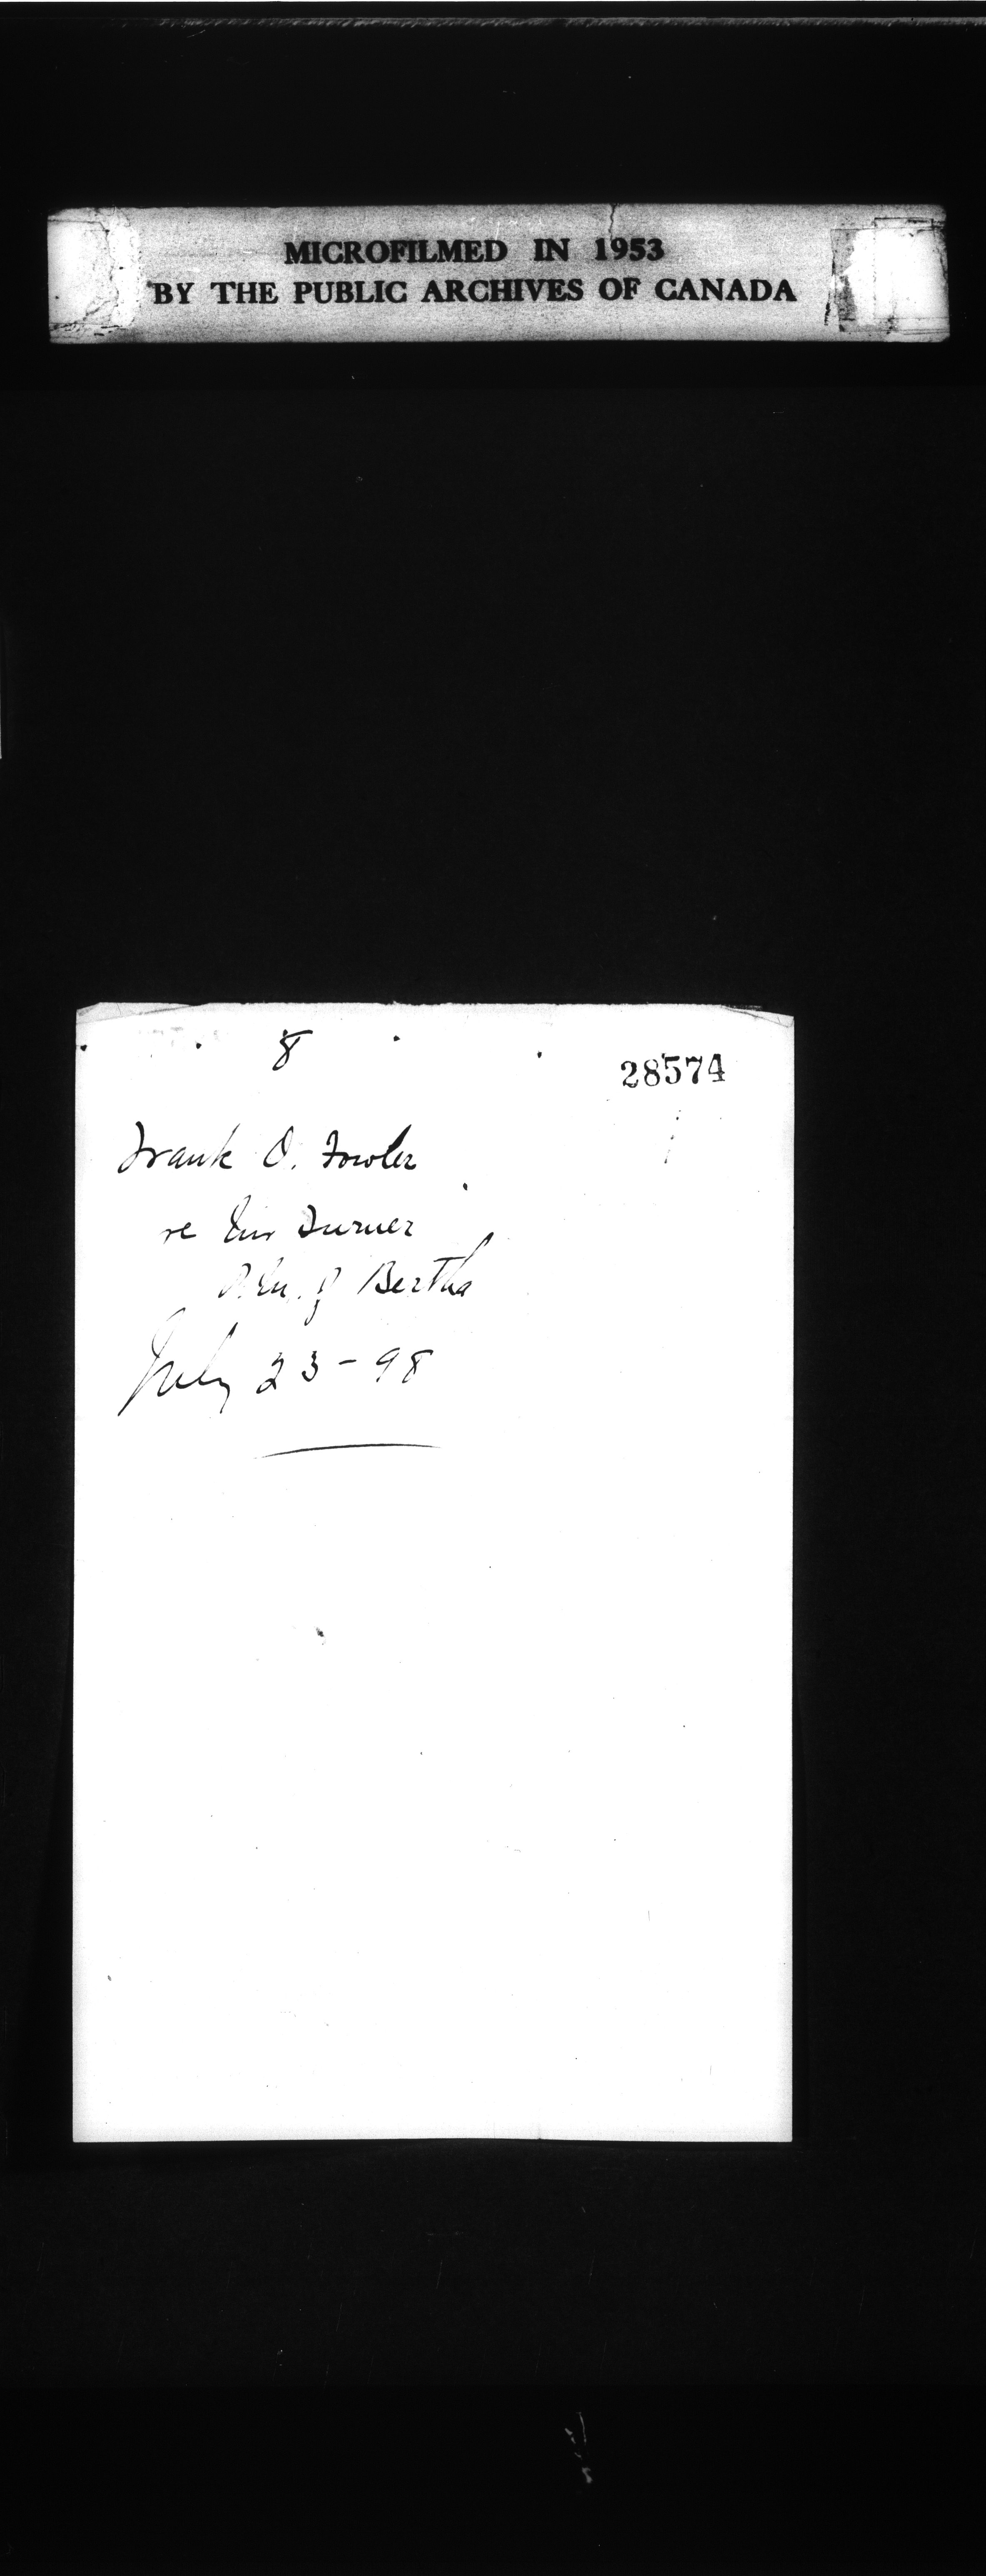 MICROFILMED IN 1953
BY THE PUBLIC ARCHIVES OF CANADA
8
28574
Frank O. Fowler
re Turner
P.M. of Bertha
July 23-98